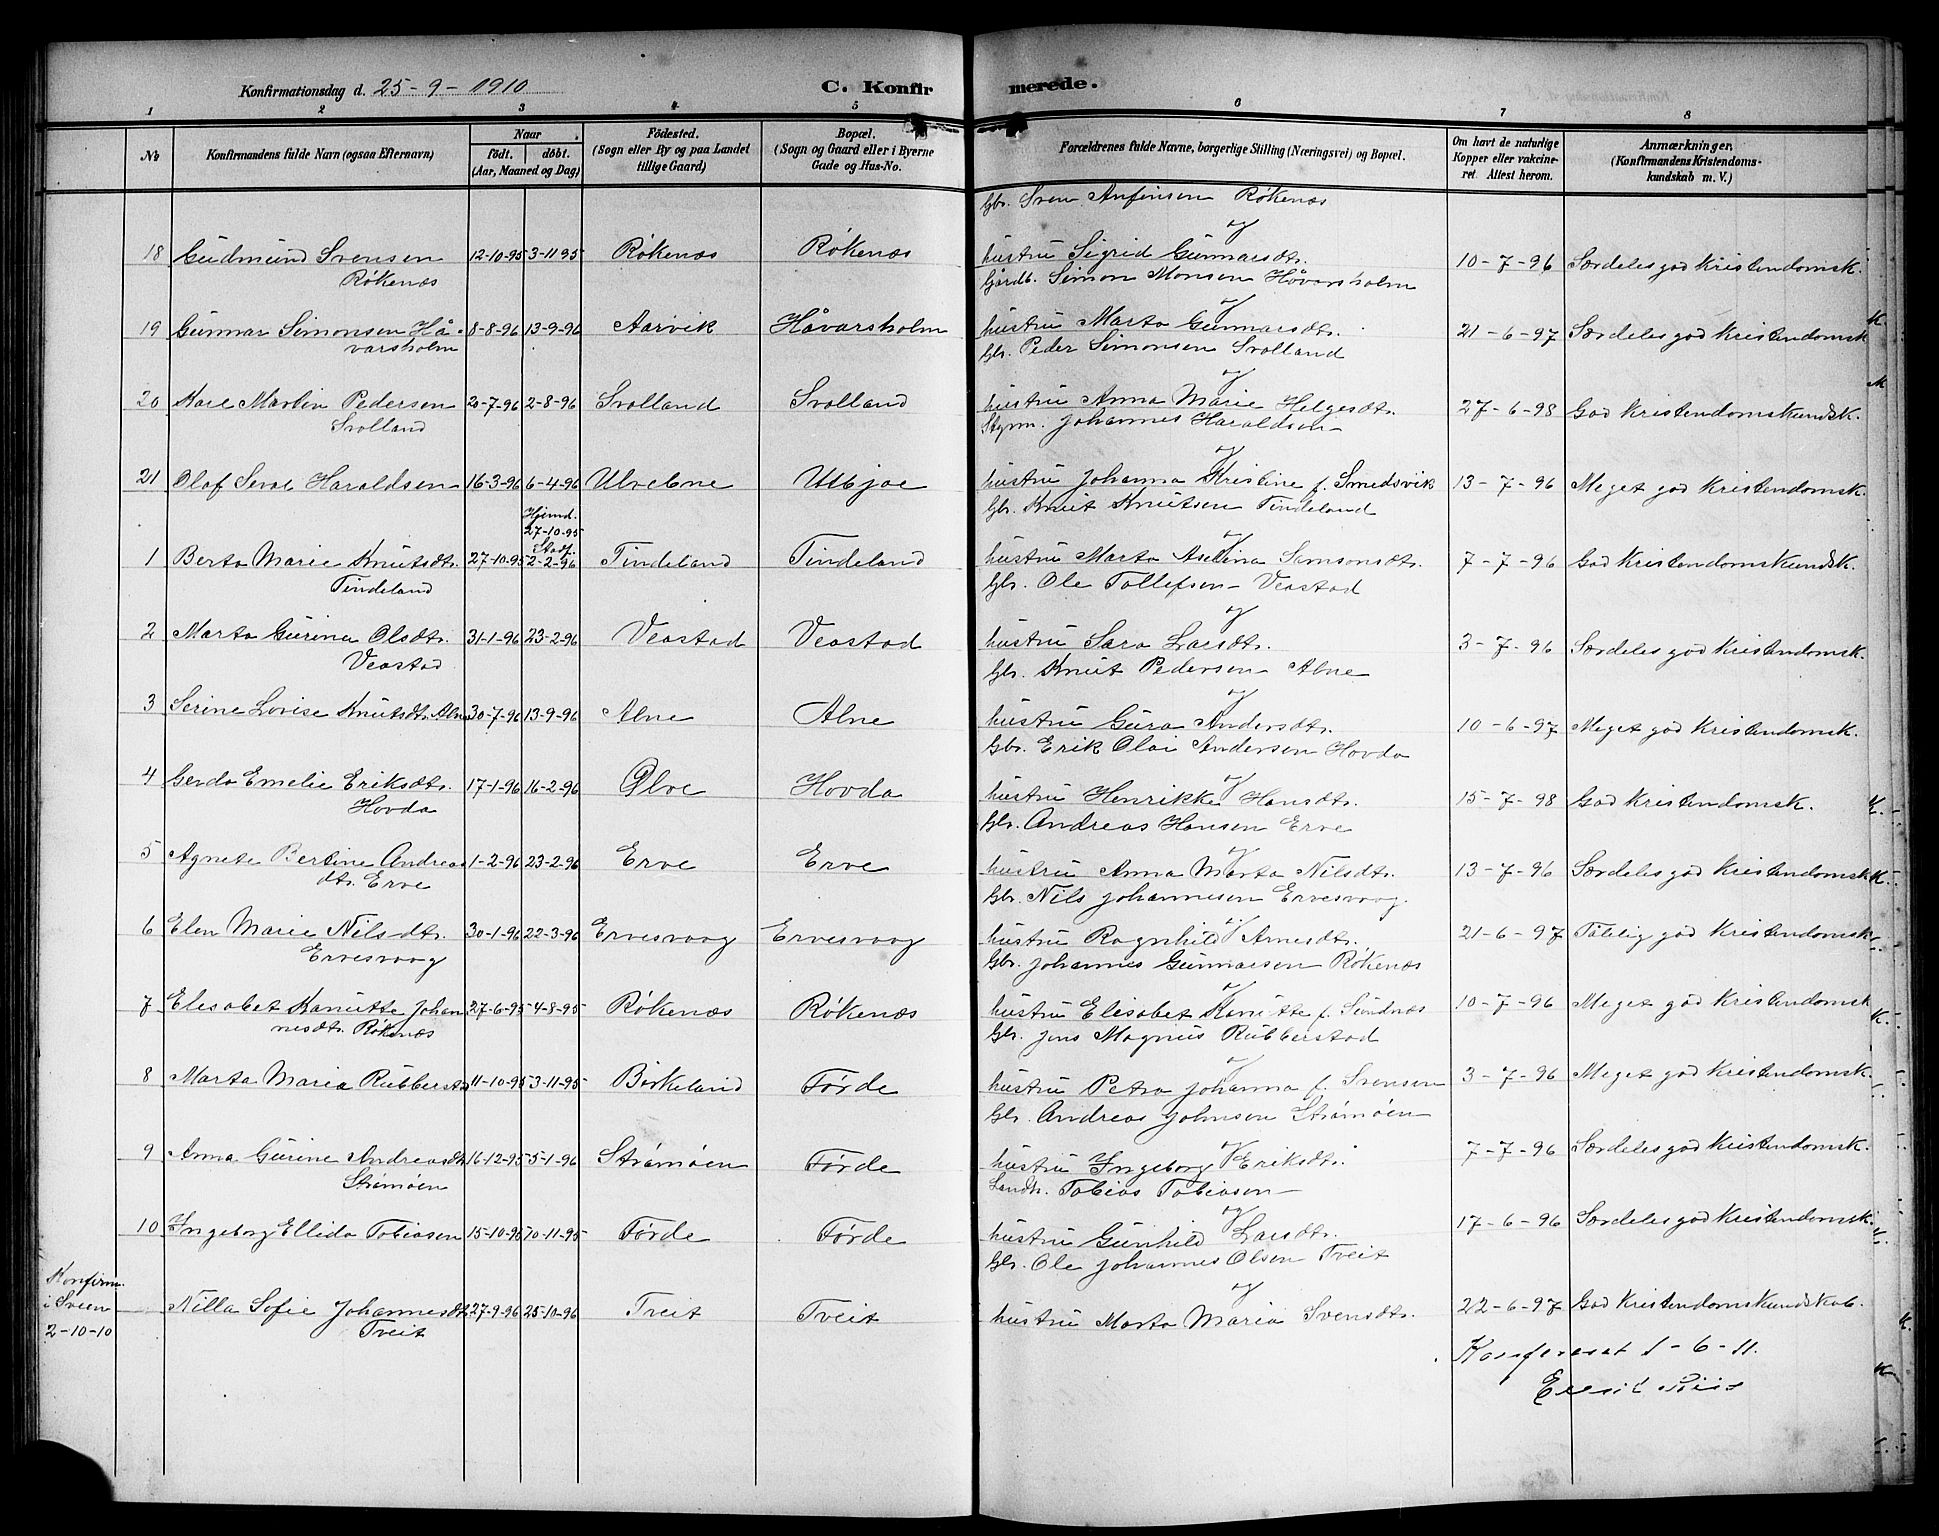 Konfirmationsdag d. 25-9-1910
C. Konfirmerede.
1 2 3 4 5 6 7 8
No
Konfirmandens fulde Navn (ogsaa Efternavn)
Naar
födt. döbt.
(Aar, Maaned og Dag)
Födested.
(Sogn eller By og paa Landet
tillige Gaard)
Bopæl.
(Sogn og Gaard eller i Byerne
Gade og Hus-No.
Forældrenes fulde Navne, borgerlige Stilling (Næringsvei) og Bopæl.
Om havt de naturlige
Kopper eller vakcine-
ret. Attest herom.
Anmærkninger.
(Konfirmandens Kristendoms-
kundskab m. V.)
Gbr. Sven Anfinsen Røkenæs
og
18 Gudmund Svensen 12-10-95 3-11-95 Røkenæs Røkenæs hustru Sigrid Gunnarsdtr. 10-7-96 Særdeles god Kristendomsk.
Røkenæs
Gårdb. Simon Monsen Håvarsholm
og
19 Gunnar Simonsen Hå- 8-8-96 13-9-96 Aarvik Håvarsholm hustru Marta Gunnarsdtr. 21-6-97 Særdeles god Kristendomsk
varsholm
Gbr. Peder Simonsen Svolland
og
20 Kare Martin Pedersen 20-7-96 2-8-96 Svolland Svolland hustru Anna Marie Helgesdtr. 27-6-98 God Kristendomskundsk.
Svolland
Styrm. Johannes Haraldsen
og
21 Olaf Haraldsen 16-3-96 6-4-96 Ulvebne Utbjoe hustru Johanna Kristine f. Smedsvik 13-7-96 Meget god Kristendomsk.
Gbr. Knut Knutsen Tindeland
Hjemd.
27-10-95
Stadf.
og
1 Berta Marie Knutsdtr. 27-10-95 2-2-96 Tindeland Tindeland hustru Marta Aselina Samsonsdtr. 7-7-96 God Kristendomskundsk.
Tindeland
Gbr. Ole Tollefsen Veastad
og
2 Marta Gurina Olsdtr. 31-1-96 23-2-96 Veastad Veastad hustru Sara Larsdtr. 3-7-96 Særdeles god Kristendomsk.
Veastad
Gbr. Knut Pedersen Alne
og
3 Serine Lovise Knutsdtr. Alne 30-7-96 13-9-96 Alne Alne hustru Guro Andersdtr. 10-6-97 Meget god Kristendomsk.
Gbr. Erik Olai Andersen Hovda
og
4 Gerda Emelie Eriksdtr. 17-1-96 16-2-96 Ølve Hovda hustru Henrikke Hansdtr. 15-7-98 God Kristendomsk.
Hovda
Gbr. Andreas Hansen Erve
og
5 Agnete Bertine Andreas 1-2-96 23-2-96 Erve Erve hustru Anna Marta Nilsdtr. 13-7-96 Særdeles god Kristendomsk
dtr. Erve
Gbr. Nils Johannesen Ervesvaag.
og
6 Elen Marie Nilsdtr. 30-1-96 22-3-96 Ervesvaag Ervesvaag hustru Ragnhild Arnesdtr. 21-6-97 Tålelig god Kristendomsk
Ervesvaag
Gbr. Johannes Gunnarsen Røkenæs
og
7 Elesabet Kanutte Johan 27-6-95 4-8-95 Røkenæs Røkenæs hustru Elisabet Kanutte f. Sundnæs 10-7-96 Meget god Kristendomsk
nesdtr. Røkenæs
Gbr. Jens Magnus Rubberstad
og
8 Marta Maria Rubbersta 11-10-95 3-11-95 Birkeland Førde hustru Petra Johanna f. Svensen 3-7-96 Meget god Kristendomsk.
Gbr. Andreas Johnsen Strømøen
og
9 Anna Gurine Andreasdt 16-12-95 5-1-96 Strømøen Førde hustru Ingeborg Eriksdtr. 7-7-96 Særdeles god Kristendomsk.
Strømøen
Landh. Tobias Tobiasen
og
10 Ingeborg Ellida Tobiasen 15-10-95 10-11-95 Førde Førde hustru Gunhild Larsdtr. 17-6-96 Særdeles god Kristendomsk.
Gbr. Ole Johannes Olsen Tveit
og
Konfirm.
i Sveen
2-10-10
Nilla Sofie Johannesdt 27-9-96 25-10-96 Tveit Tveit hustru Marta Maria Svensdtr. 22-6-97 God Kristendomskundskab.
Tveit
Konfereret 1-6-11.